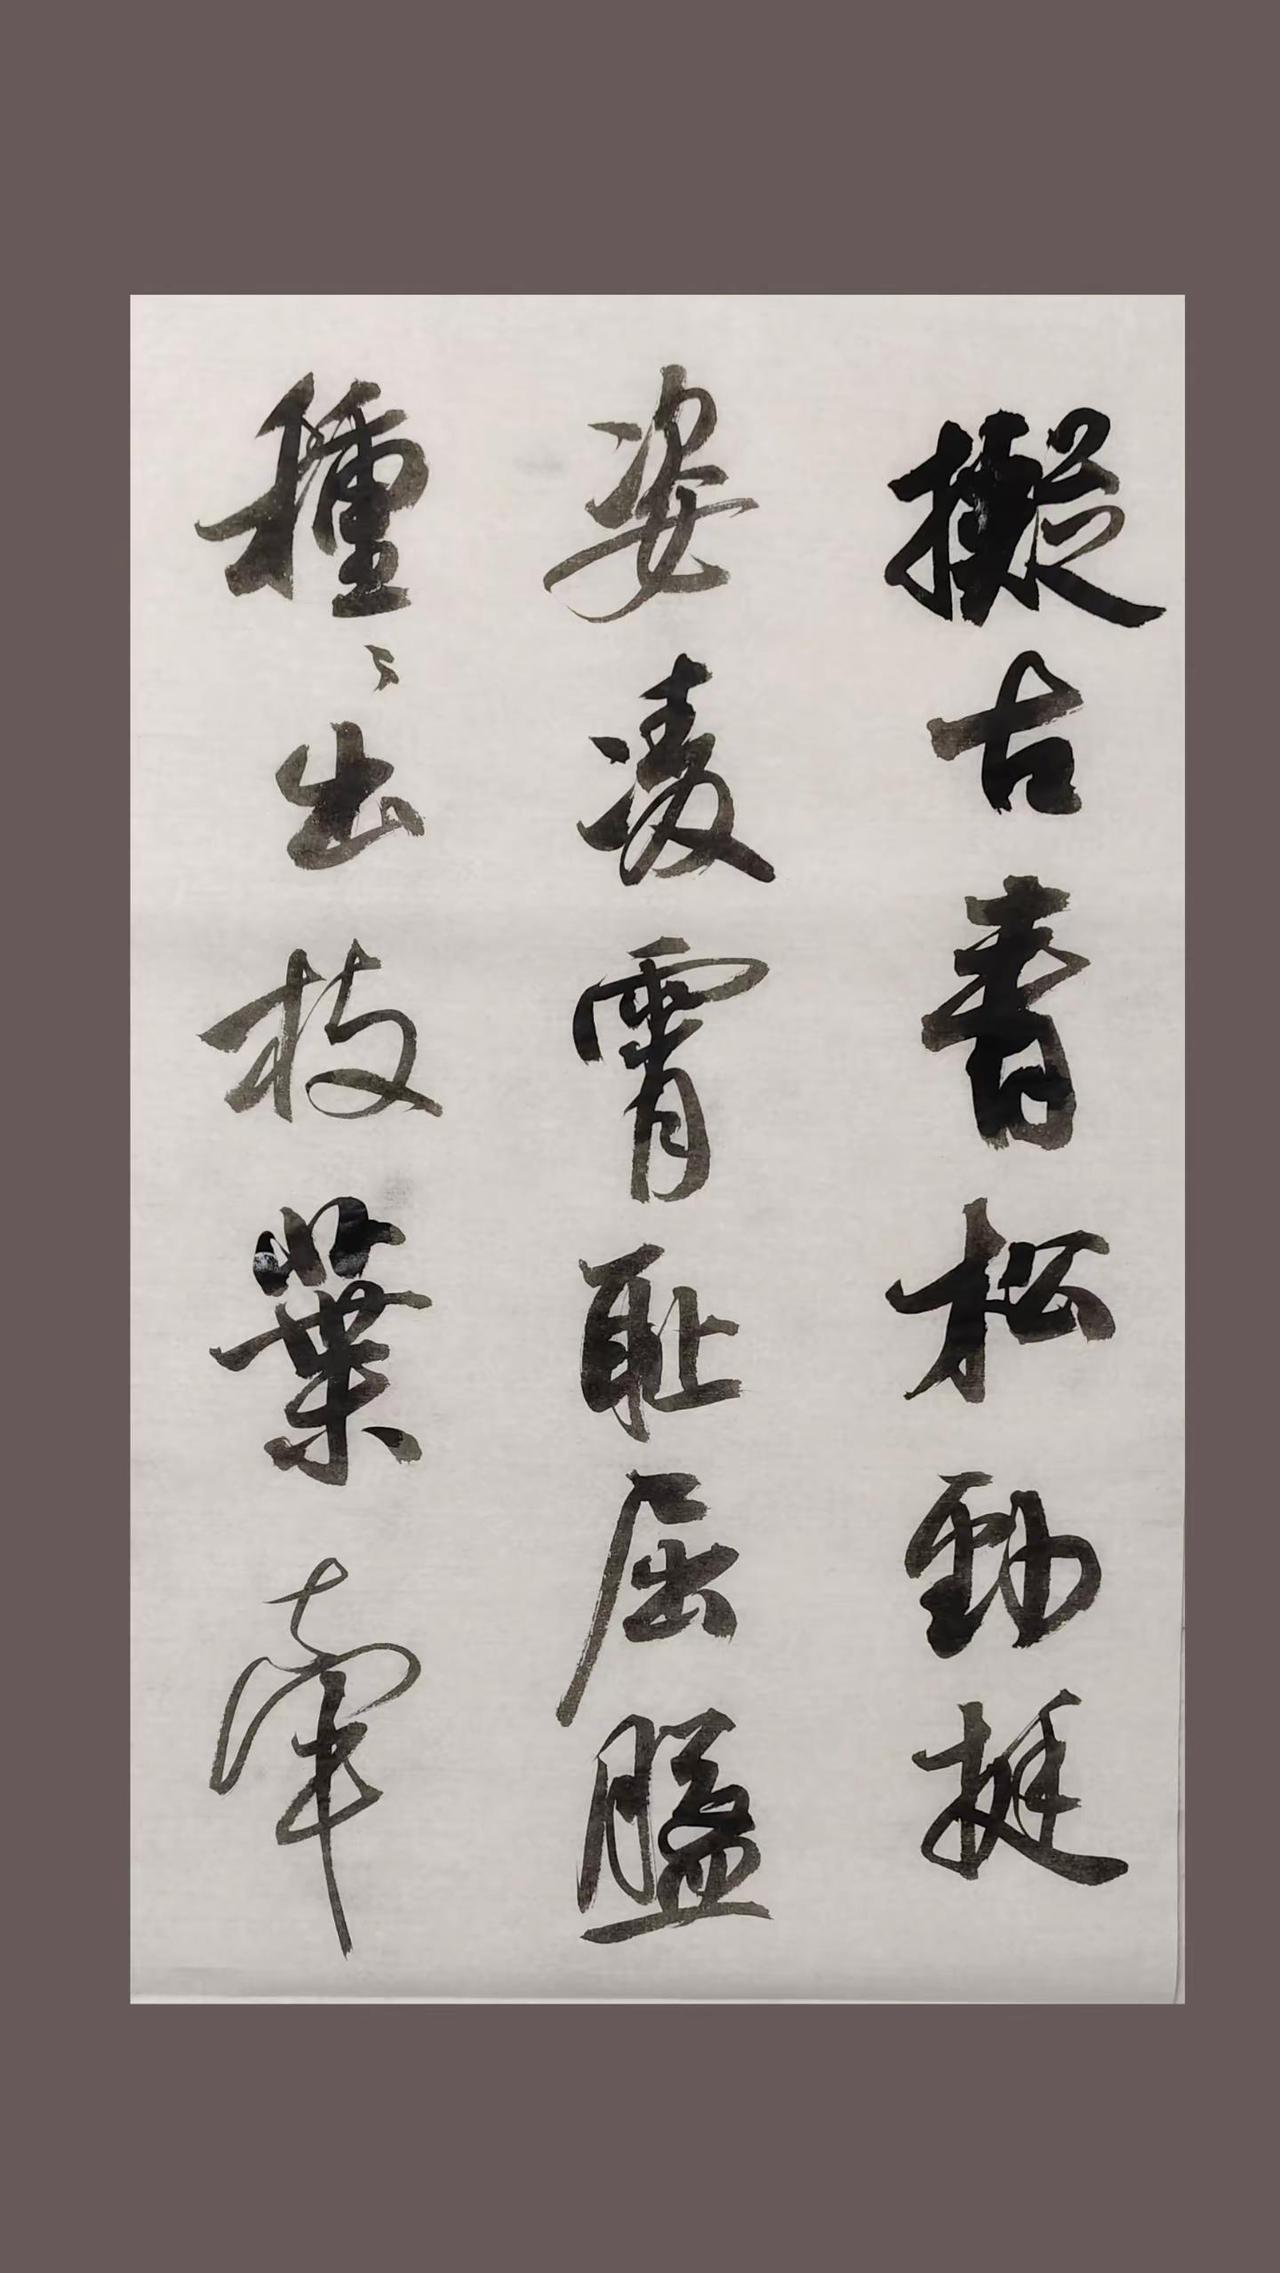 擬古青松勁挺
姿凌霄恥屈盤
種々出枝葉牽